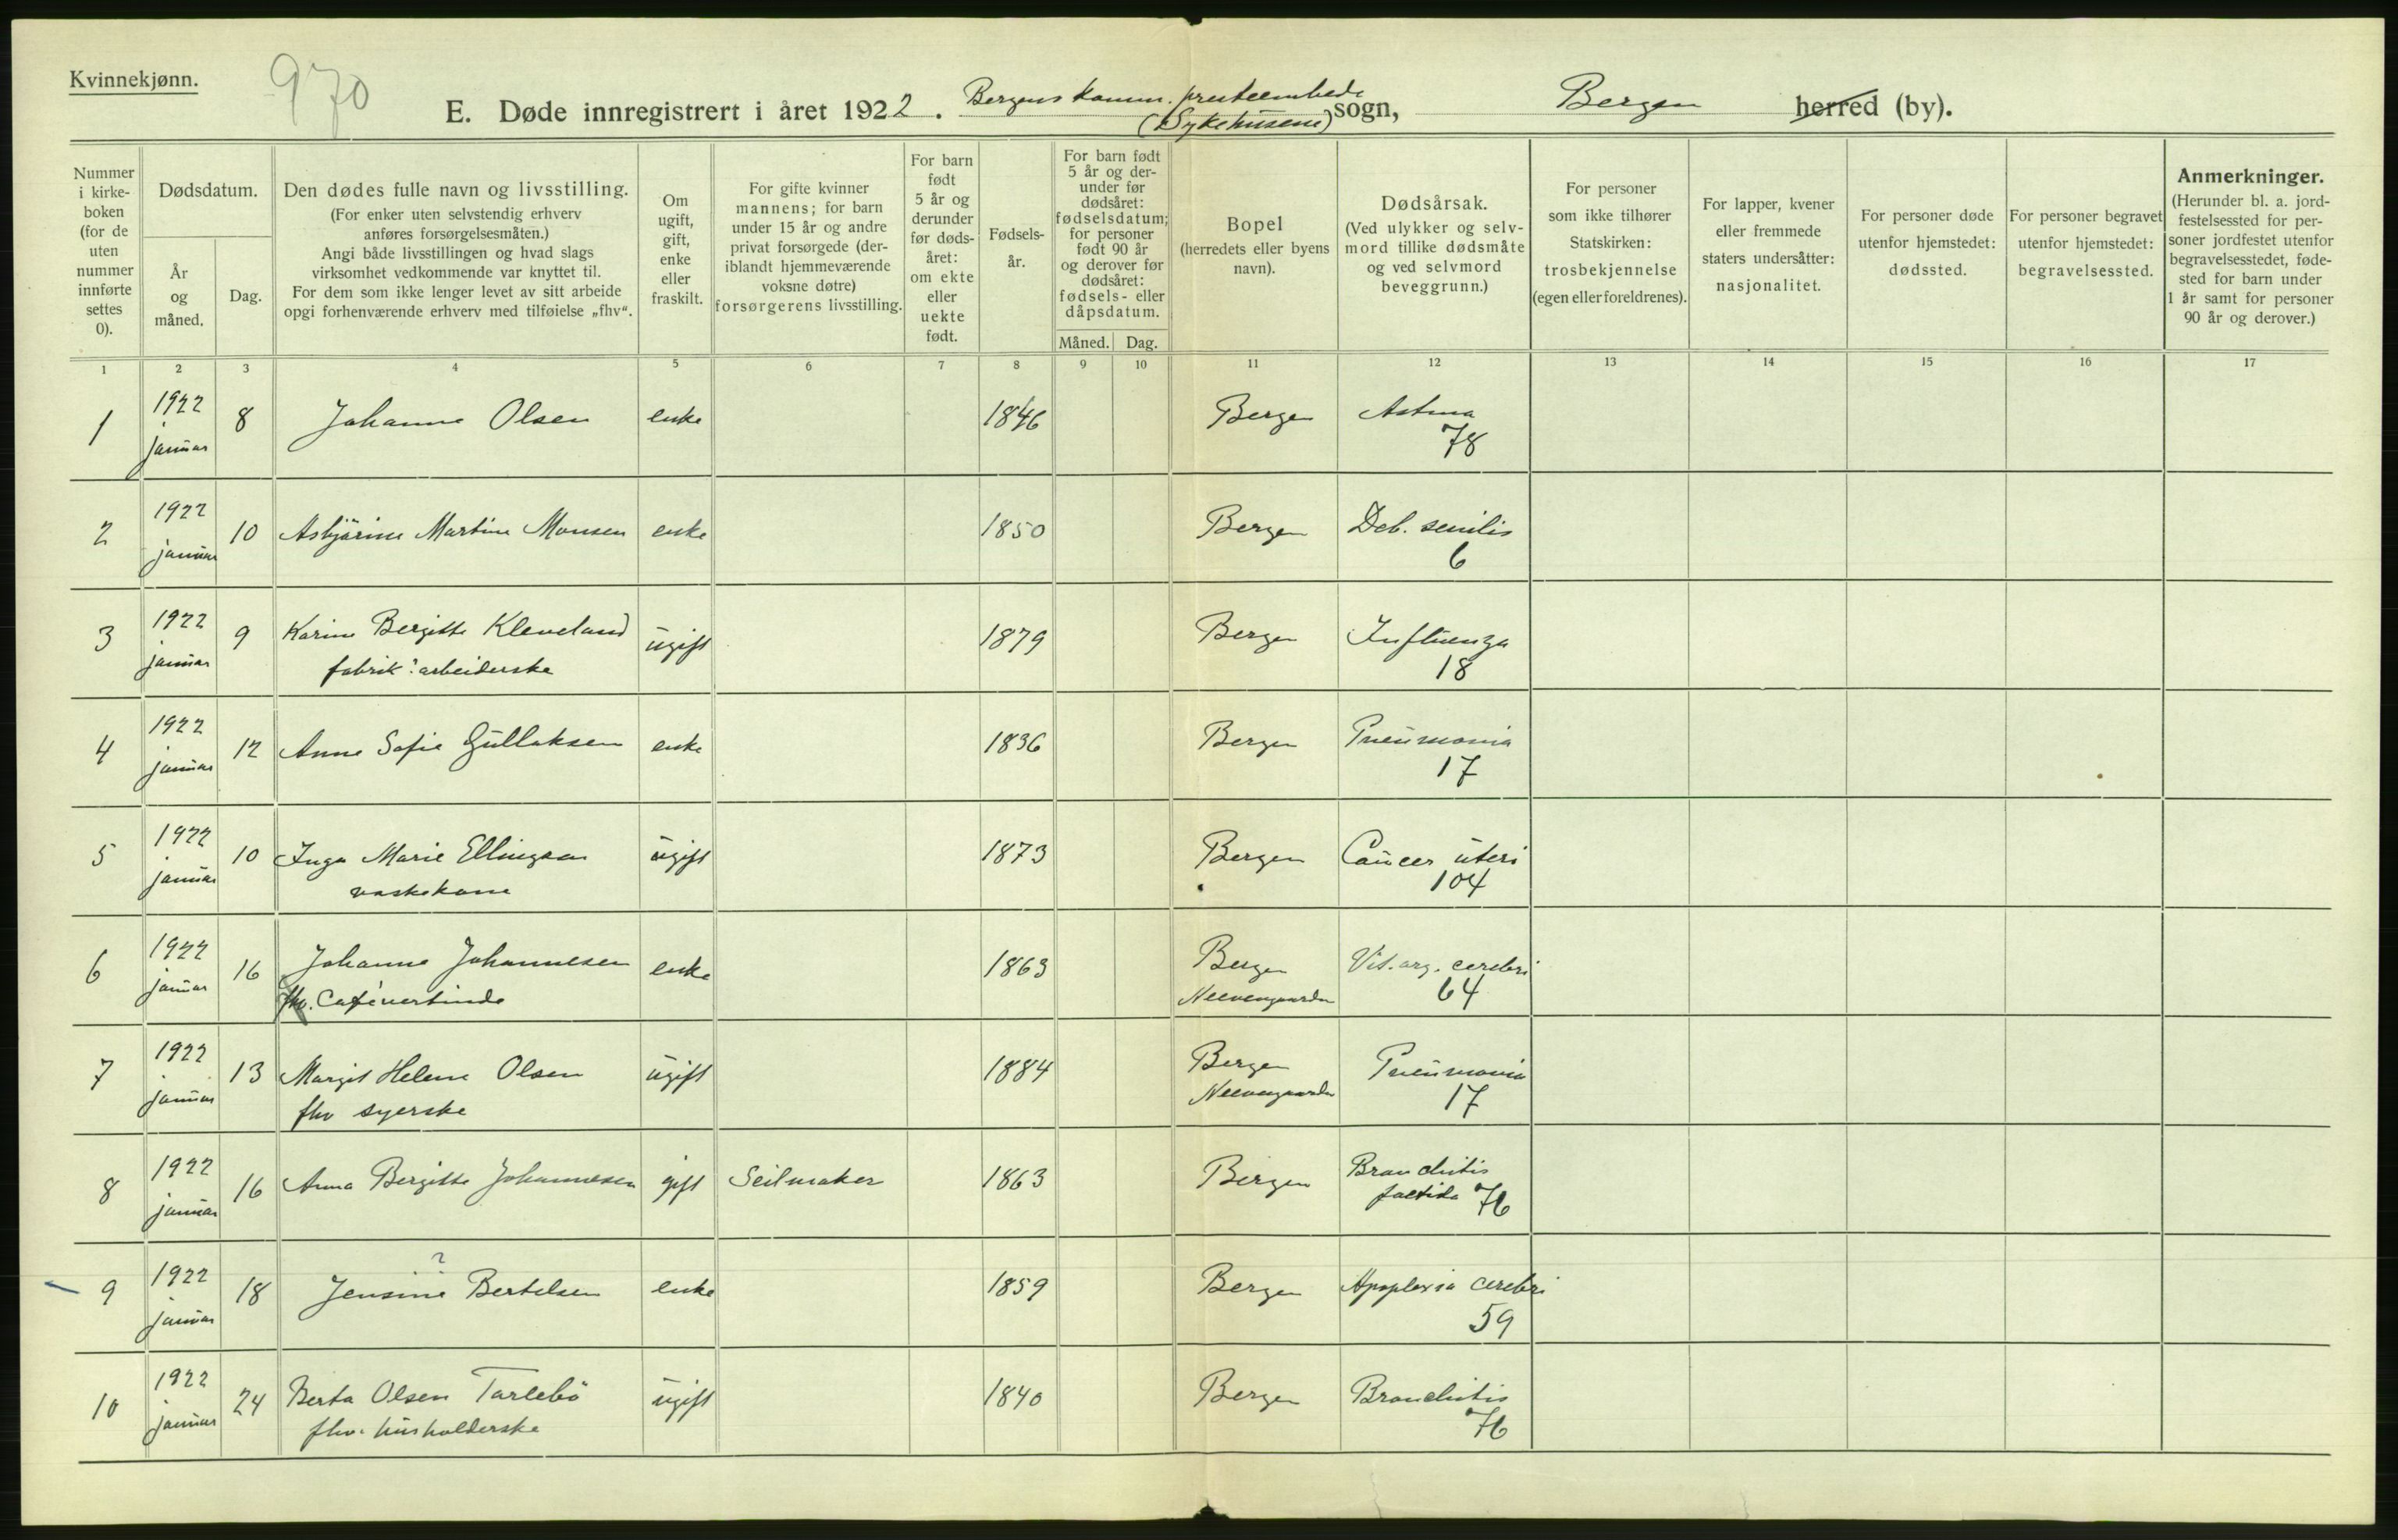 Kvinnekjønn.
970
E. Døde innregistrert i året 1922. Bergens komm. presteembede (Sykehusene) sogn, Bergen herred (by).
Nummer i kirkeboken (for de uten nummer innførte settes 0).
Dødsdatum.
År og måned.
Dag.
Den dødes fulle navn og livsstilling.
(For enker uten selvstendig erhverv
anføres forsørgelsesmåten.)
Angi både livsstillingen og hvad slags
virksomhet vedkommende var knyttet til.
For dem som ikke lenger levet av sitt arbeide
opgi forhenværende erhverv med tilføielse „fhv“.
Om ugift, gift, enke eller fraskilt.
For gifte kvinner
mannens; for barn
under 15 år og andre
privat forsørgede (der-
iblandt hjemmeværende
voksne døtre)
forsørgerens livsstilling.
For barn
født
5 år og
derunder
før døds-
året:
om ekte
eller
uekte
født.
Fødsels-
år.
For barn født
5 år og der-
under før
dødsåret:
fødselsdatum;
for personer
født 90 år
og derover før
dødsåret:
fødsels- eller
dåpsdatum.
Måned. Dag.
Bopel
(herredets eller byens
navn).
Dødsårsak.
(Ved ulykker og selv-
mord tillike dødsmåte
og ved selvmord
beveggrunn.)
For personer
som ikke tilhører
Statskirken:
trosbekjennelse
(egen eller foreldrenes).
For lapper, kvener
eller fremmede
staters undersåtter:
nasjonalitet.
For personer døde
utenfor hjemstedet:
dødssted.
For personer begravet
utenfor hjemstedet:
begravelsessted.
Anmerkninger.
(Herunder bl. a. jord-
festelsessted for per-
soner jordfestet utenfor
begravelsesstedet, føde-
sted for barn under
1 år samt for personer
90 år og derover.)
1 2 3 4 5 6 7 8 9 10 11 12 13 14 15 16 17
1 1922 januar 8 Johanne Olsen enke 1846 Bergen Astma 78
2 1922 januar 10 Asbjørine Martine Monsen enke 1850 Bergen Deb. senilis 6
3 1922 januar 9 Karine Bergitte Kleveland fabrik:arbeiderske ugift 1879 Bergen Influenza 18
4 1922 januar 12 Anne Sofie Gullaksen enke 1836 Bergen Pneumonia 17
5 1922 januar 10 Inga Marie Ellingsen vaskekone ugift 1873 Bergen Cancer uteri 104
6 1922 januar 16 Johanne Johannesen fhv. Cafévertinde enke 1863 Bergen Neevengaarden Vit. org. cerebri 64
7 1922 januar 13 Margit Helene Olsen fhv syerske ugift 1884 Bergen Neevengaarden Pneumonia 17
8 1922 januar 16 Anna Bergitte Johannesen gift Seilmaker 1863 Bergen Bronchitis foetida 76
9 1922 januar 18 Jensine ? Bertelsen enke 1859 Bergen Apoplexia cerebri 59
10 1922 januar 24 Berta Olsen Tarlebö fhv. husholderske ugift 1840 Bergen Bronchitis 76